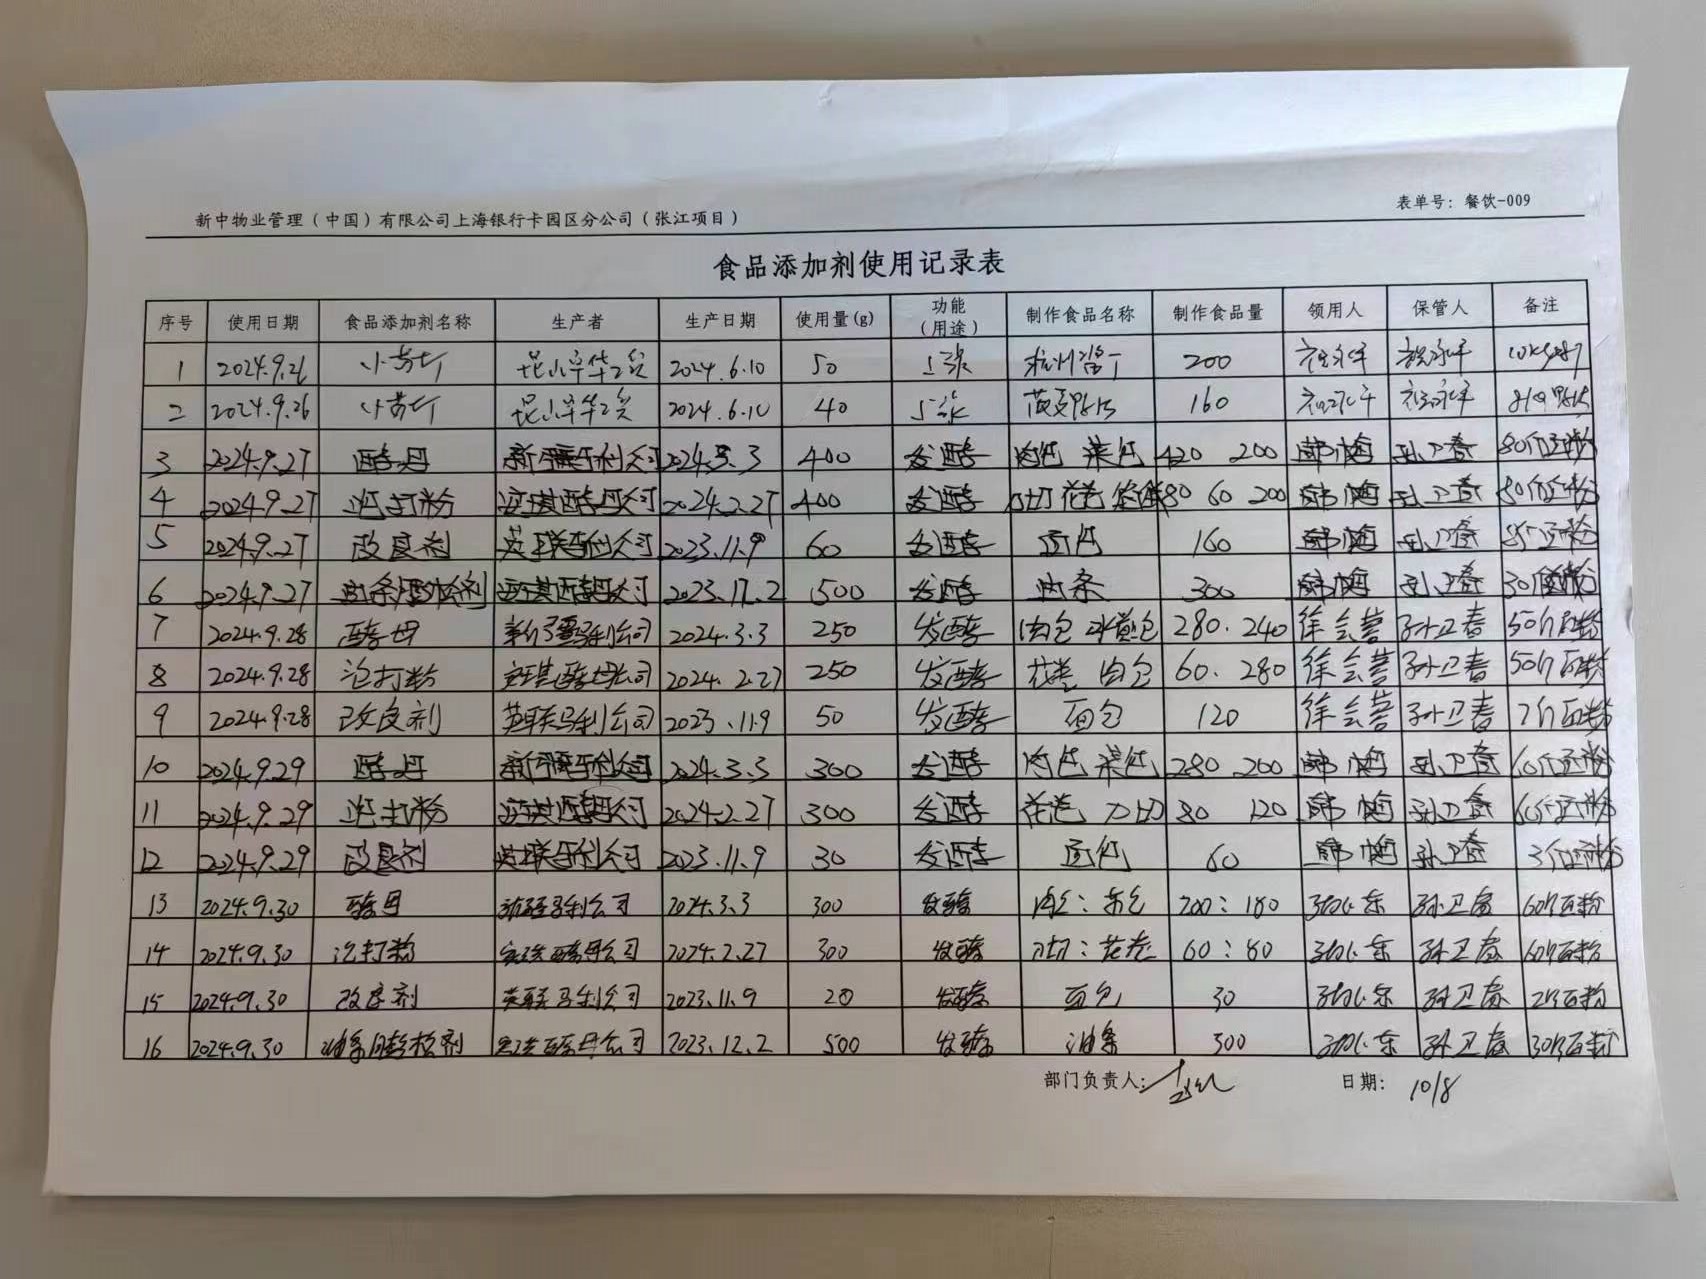 新中物业管理（中国）有限公司上海银行卡园区分公司（张江项目）
表单号：餐饮-009
食品添加剂使用记录表
序号 使用日期 食品添加剂名称 生产者 生产日期 使用量(g) 功能（用途） 制作食品名称 制作食品量 领用人 保管人 备注
1 2024.9.26 小苏打 2024.6.10 50 200
2 2024.9.26 小苏打 2024.6.10 40 160
3 2024.9.27 酵母 新疆马利公司 2024.3.3 400 发酵 肉包 菜包 420 200 韩梅 孙卫春 80斤面粉
4 2024.9.27 泡打粉 安琪酵母公司 2024.2.27 400 发酵 刀切 花卷 80 60 200 韩梅 孙卫春 80斤面粉
5 2024.9.27 改良剂 英联马利公司 2023.11.9 60 发酵 面包 160 韩梅 孙卫春 8斤面粉
6 2024.9.27 油条膨松剂 安琪酵母公司 2023.12.2 500 发酵 油条 300 韩梅 孙卫春 30斤面粉
7 2024.9.28 酵母 新疆马利公司 2024.3.3 250 发酵 肉包 280.240 徐会营 孙卫春 50斤面粉
8 2024.9.28 泡打粉 安琪酵母公司 2024.2.27 250 发酵 花卷 肉包 60.280 徐会营 孙卫春 50斤面粉
9 2024.9.28 改良剂 英联马利公司 2023.11.9 50 发酵 面包 120 徐会营 孙卫春 7斤面粉
10 2024.9.29 酵母 新疆马利公司 2024.3.3 300 发酵 肉包 菜包 280 200 韩梅 孙卫春 60斤面粉
11 2024.9.29 泡打粉 安琪酵母公司 2024.2.27 300 发酵 花卷 刀切 80 120 韩梅 孙卫春 60斤面粉
12 2024.9.29 改良剂 英联马利公司 2023.11.9 30 发酵 面包 60 韩梅 孙卫春 3斤面粉
13 2024.9.30 酵母 新疆马利公司 2024.3.3 300 发酵 肉包：菜包 200：180 孙卫春 60斤面粉
14 2024.9.30 泡打粉 安琪酵母公司 2024.2.27 300 发酵 刀切：花卷 60：80 孙卫春 60斤面粉
15 2024.9.30 改良剂 英联马利公司 2023.11.9 20 发酵 面包 30 孙卫春 2斤面粉
16 2024.9.30 油条膨松剂 安琪酵母公司 2023.12.2 500 发酵 油条 300 孙卫春 30斤面粉
部门负责人： 日期： 10/8